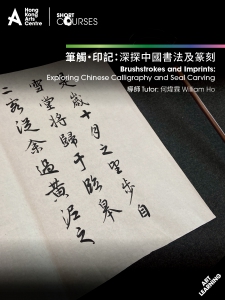 Hong Kong Arts Centre
SHORT COURSES
筆觸・印記：深探中國書法及篆刻
Brushstrokes and Imprints:
Exploring Chinese Calligraphy and Seal Carving
導師 Tutor: 何煒霖 William Ho
是歲十月之望步自
雪堂將歸于臨皋
二客從余過黃泥之
ART LEARNING